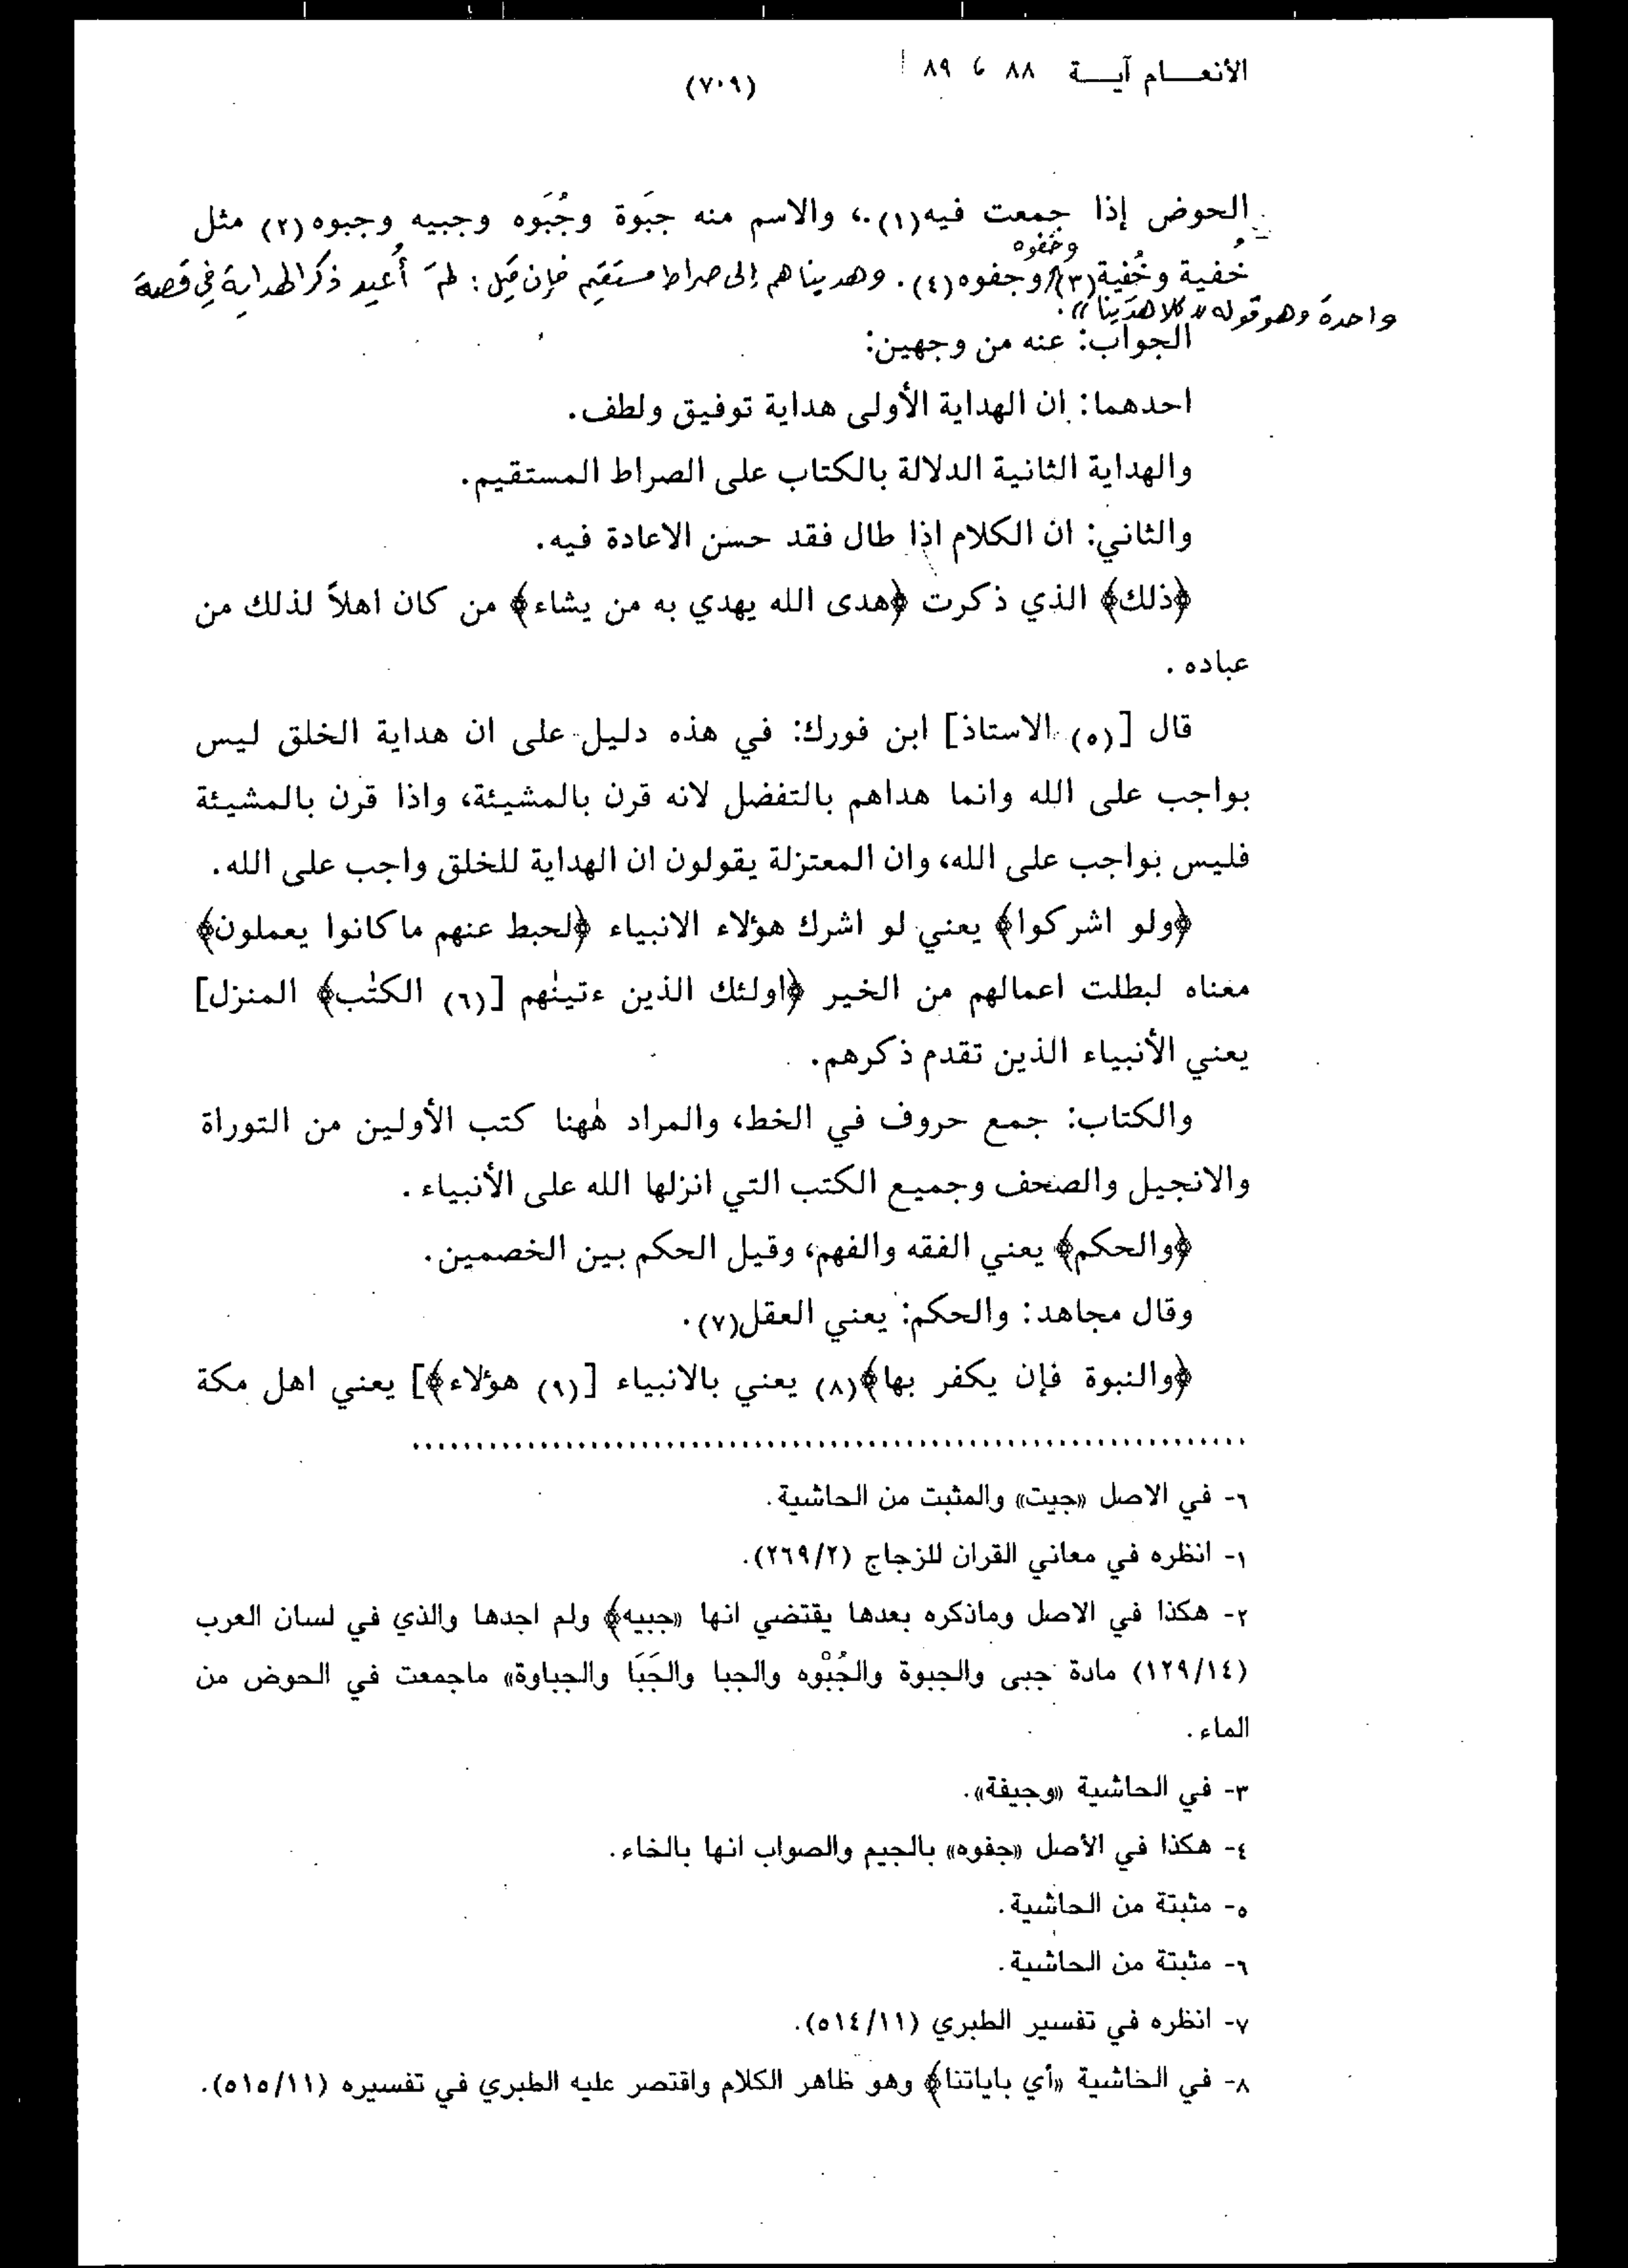 الأنعـــام آيـــة ٨٨ ، ٨٩
(٧٠٩)
الحوض إذا جمعت فيه(١).، والاسم منه جبَوة وجُبَوه وجبيه وجبوه(٢) مثل
وخفوه
خُفية وخُفية(٣)/وجفوه(٤). وهديناهم إلى صراط مستقيم فإن قيل: لمَ أُعيد ذكر الهداية في قصة
واحدة وهو قوله «كلا هدَينا».
الجواب: عنه من وجهين:
احدهما: ان الهداية الأولى هداية توفيق ولطف.
والهداية الثانية الدلالة بالكتاب على الصراط المستقيم.
والثاني: ان الكلام اذا طال فقد حسن الاعادة فيه.
﴿ذلك﴾ الذي ذكرت ﴿هدى الله يهدي به من يشاء﴾ من كان اهلاً لذلك من
عباده.
قال [(٥) الاستاذ] ابن فورك: في هذه دليل على ان هداية الخلق ليس
بواجب على الله وانما هداهم بالتفضل لانه قرن بالمشيئة، واذا قرن بالمشيئة
فليس بواجب على الله، وان المعتزلة يقولون ان الهداية للخلق واجب على الله.
﴿ولو اشركوا﴾ يعني لو اشرك هؤلاء الانبياء ﴿لحبط عنهم ماكانوا يعملون﴾
معناه لبطلت اعمالهم من الخير ﴿اولئك الذين ءتينٰهم [(٦) الكتٰب﴾ المنزل]
يعني الأنبياء الذين تقدم ذكرهم.
والكتاب: جمع حروف في الخط، والمراد هٰهنا كتب الأولين من التوراة
والانجيل والصحف وجميع الكتب التي انزلها الله على الأنبياء.
﴿والحكم﴾ يعني الفقه والفهم، وقيل الحكم بين الخصمين.
وقال مجاهد: والحكم: يعني العقل(٧).
﴿والنبوة فإن يكفر بها﴾(٨) يعني بالانبياء [(٩) هؤلاء﴾] يعني اهل مكة
٦- في الاصل «جيت» والمثبت من الحاشية.
١- انظره في معاني القران للزجاج (٢٦٩/٢).
٢- هكذا في الاصل وماذكره بعدها يقتضي انها «جبيه﴾ ولم اجدها والذي في لسان العرب
(١٢٩/١٤) مادة جبى والجبوة والجُبْوه والجبا والجَبَا والجباوة» ماجمعت في الحوض من
الماء.
٣- في الحاشية «وجيفة».
٤- هكذا في الأصل «جفوه» بالجيم والصواب انها بالخاء.
٥- مثبتة من الحاشية.
٦- مثبتة من الحاشية.
٧- انظره في تفسير الطبري (٥١٤/١١).
٨- في الحاشية «أي باياتنا﴾ وهو ظاهر الكلام واقتصر عليه الطبري في تفسيره (٥١٥/١١).